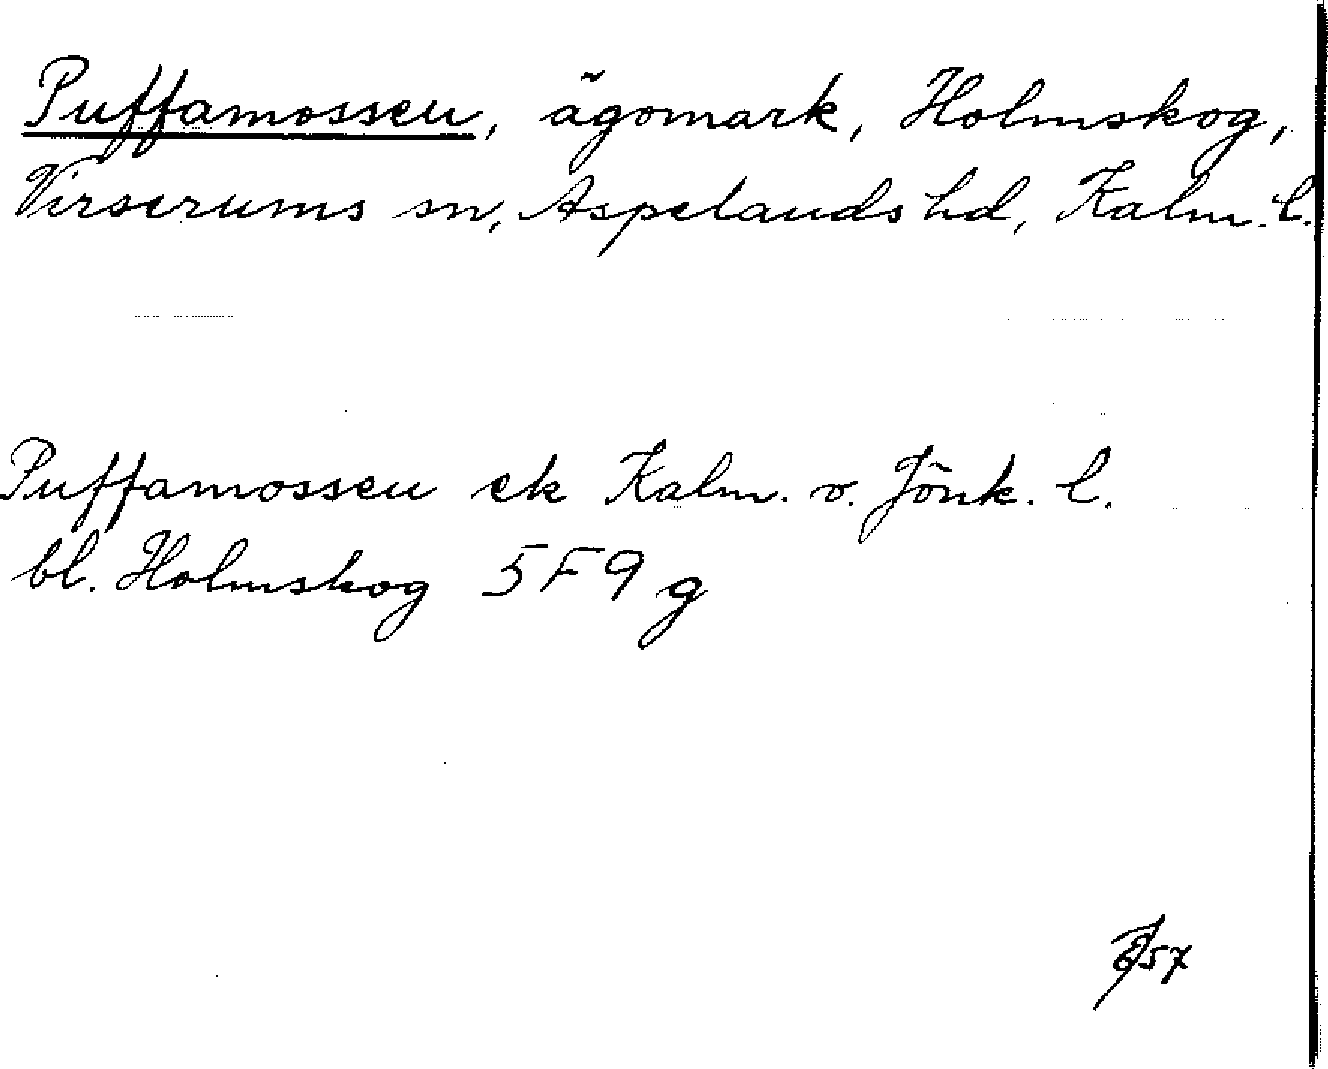 Puffamossen, ägomark, Holmskog,
Virserums sn, Aspelands hd, Kalm. l.
Puffamossen ek Kalm. v. Jönk. l.
bl. Holmskog 5F9g